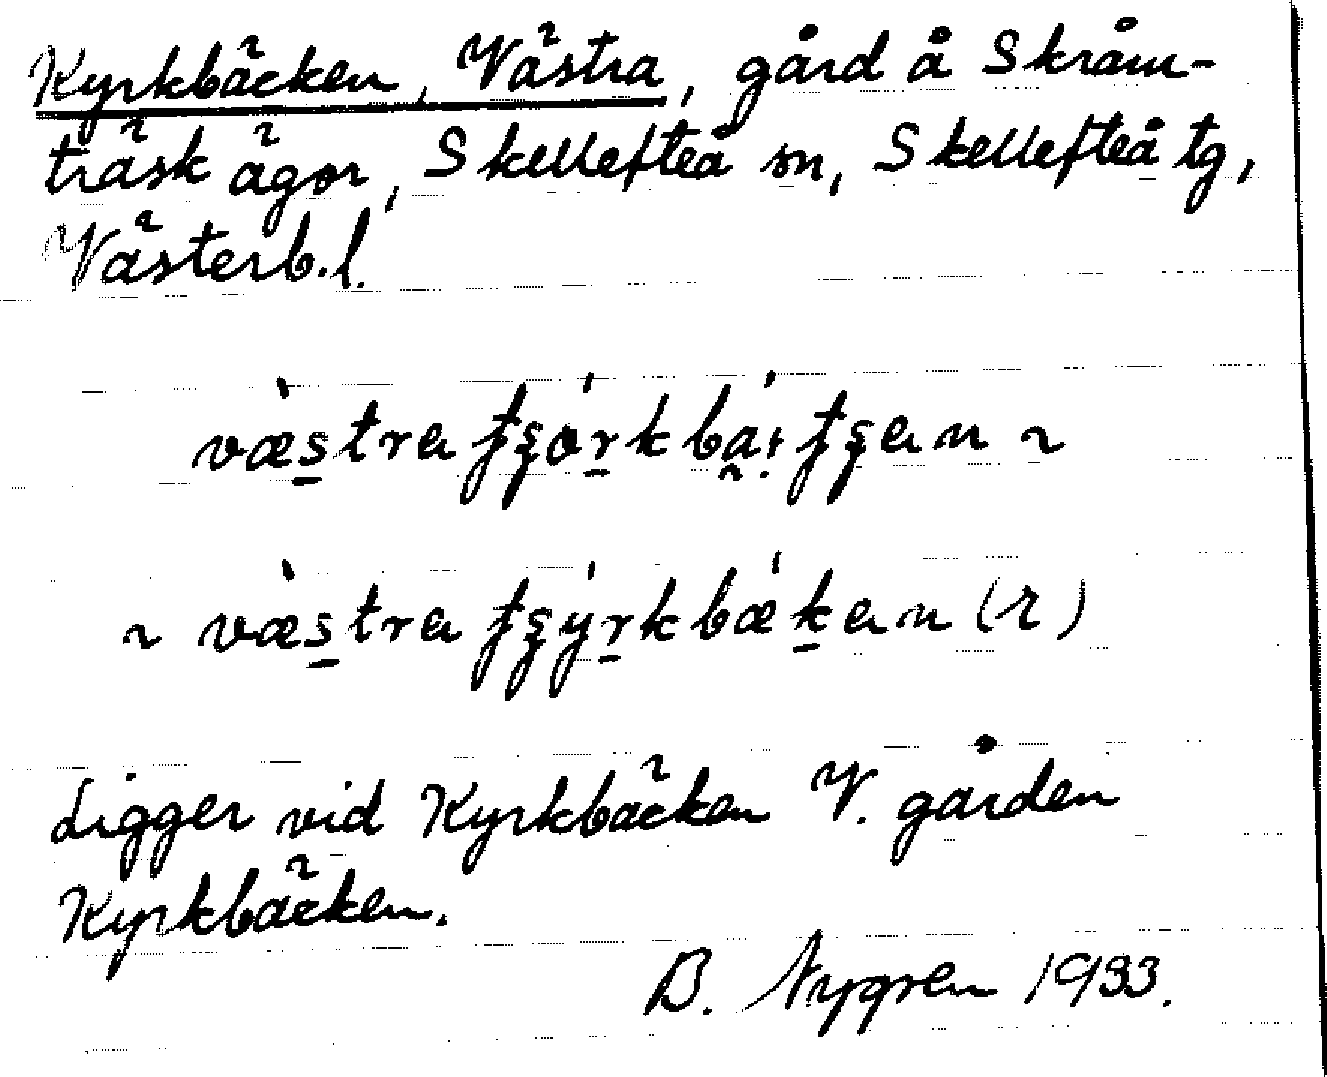 Kyrkbäcken, Västra, gård å Skråm-
träsk ägor, Skellefteå sn, Skellefteå tg,
Västerb.l.
væ̀s̠tra
~
~ væ̀s̠tra
(r)
Ligger vid Kyrkbäcken V. gården
Kyrkbäcken.
B. Nygren 1933.